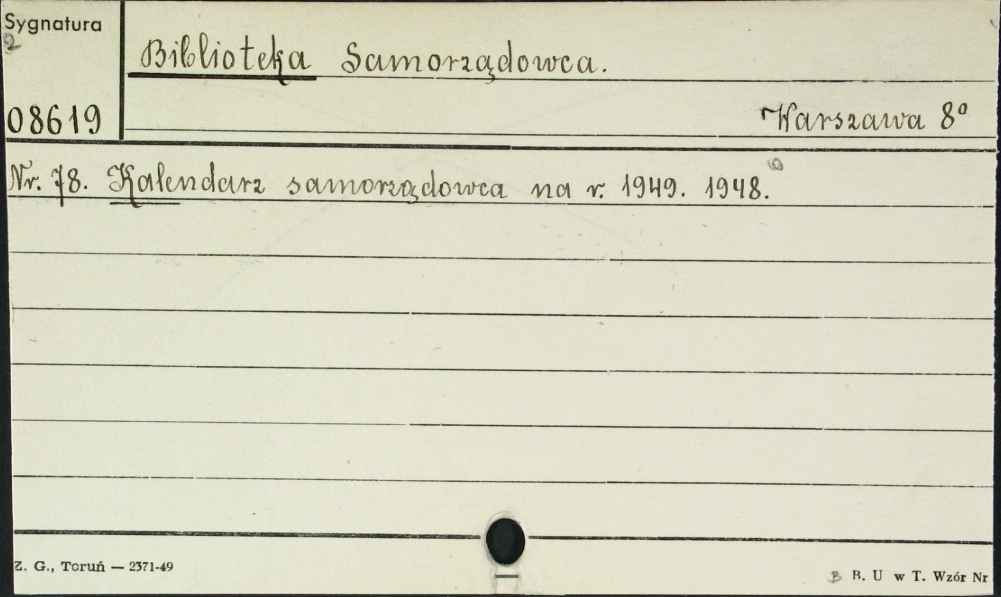 Sygnatura
2
Biblioteka Samorządowca.
08619
Warszawa 8º
Nr. 78. Kalendarz samorządowca na r. 1949. 1948.
Z. G., Toruń — 2371-49
B. U w T. Wzór Nr